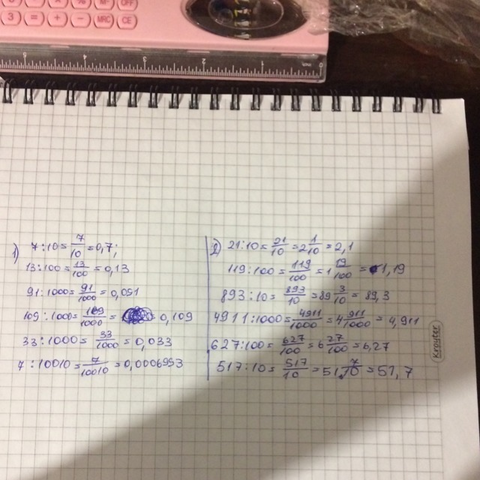 1) 7:10=7/10=0,7;
13:100=13/100=0,13
91:1000=91/1000=0,091
109:1000=109/1000= 0,109
33:1000=33/1000=0,033
7:10010=7/10010=0,0006993
2) 21:10=21/10=2 1/10=2,1
119:100=119/100=1 19/100=1,19
893:10=893/10=89 3/10=89,3
4911:1000=4911/1000=4 911/1000=4,911
627:100=627/100=6 27/100=6,27
517:10=517/10=51 7/10=51,7
Kroyter
OFF
3 0 + - MRC CE